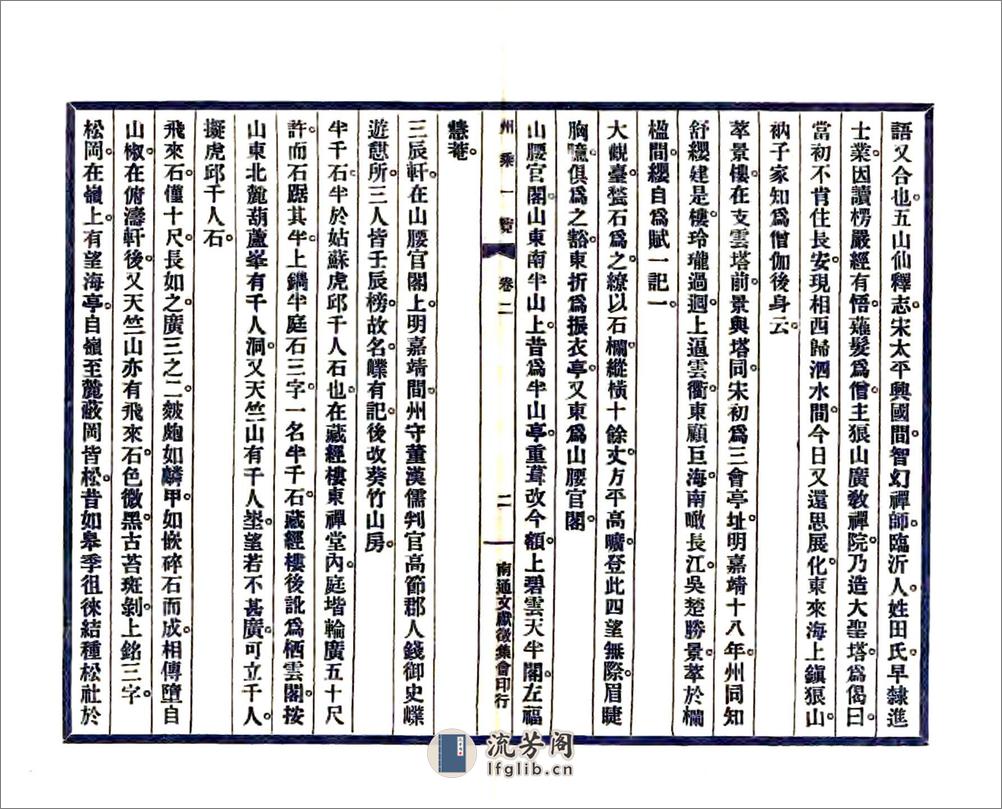 語又合也。五山仙釋志。宋太平興國間。智幻禪師。臨沂人。姓田氏。早隸進
士業。因讀楞嚴經有悟。薙髮爲僧。主狼山廣教禪院。乃造大聖塔。爲偈曰。
當初不肯住長安。現相西歸泗水間。今日又還思展化。東來海上鎭狼山。
衲子家知爲僧伽後身云。
萃景樓。在支雲塔前。景與塔同。宋初爲三會亭址。明嘉靖十八年。州同知
舒纓建是樓。玲瓏過迴。上逼雲衢。東顧巨海。南瞰長江。吳楚勝景。萃於欄
楹間。纓自爲賦一記一。
大觀臺。甃石爲之。繚以石欄。縱橫十餘丈。方平高曠。登此四望無際。眉睫
胸臆。俱爲之豁。東折爲振衣亭。又東爲山腰官閣。
山腰官閣。山東南半山上。昔爲半山亭。重葺改今額。上碧雲天半閣。左福
慧菴。
三辰軒。在山腰官閣上。明嘉靖間。州守董漢儒。判官高節。郡人錢御史嶫
遊憩所。三人皆壬辰榜。故名。嶫有記。後改葵竹山房。
半千石。半於姑蘇虎邱千人石也。在藏經樓東禪堂內。庭堦輪廣五十尺
許。而石踞其半。上鐫半庭石三字。一名半千石。藏經樓後訛爲栖雲閣。按
山東北麓葫蘆峯有千人洞。又天竺山有千人埊。望若不甚廣。可立千人。
擬虎邱千人石。
飛來石。僅十尺。長如之。廣三之二。皴皰如麟甲。如嵌碎石而成。相傳墮自
山椒。在俯濤軒後。又天竺山亦有飛來石。色微黑。古苔斑剝。上銘三字。
松岡。在嶺上。有望海亭。自嶺至麓。蔽岡皆松。昔如皋季徂徠結種松社於
州乘一覽
卷二
二
南通文獻徵集會印行
流芳阁
lfglib.cn